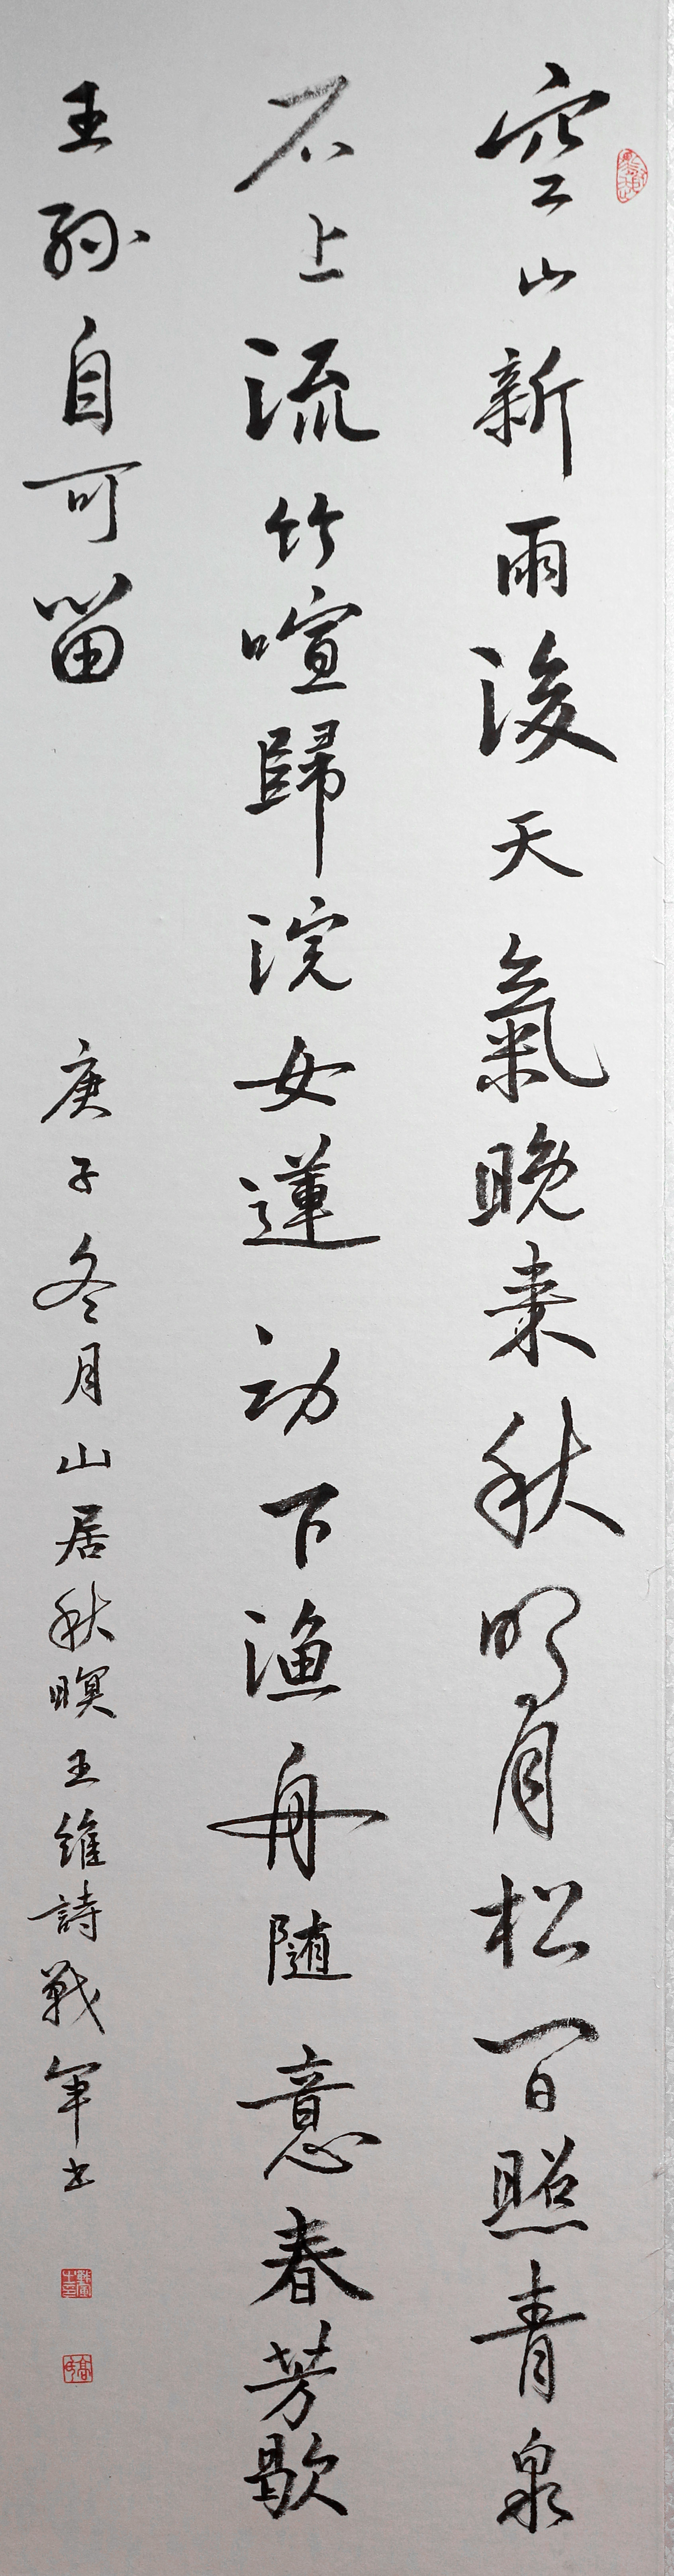 空山新雨後天氣晚来秋明月松間照青泉
石上流竹喧歸浣女蓮动下渔舟随意春芳歇
王孫自可留
庚子冬月山居秋暝王維詩戰军书